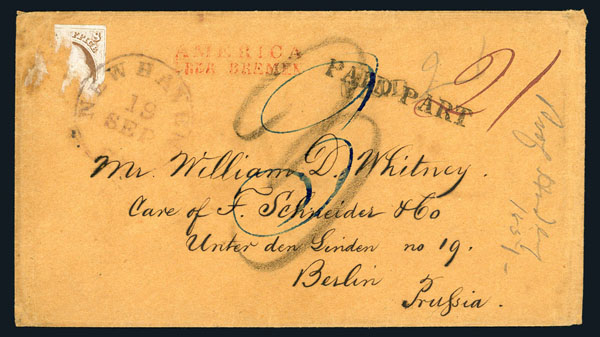 AMERICA
ÜBER BREMEN
PAID PART
NEW HAVEN
19
SEP
21
3
Mr. William D. Whitney.
Care of F. Schneider & Co
Unter den Linden no 19.
Berlin
Prussia.